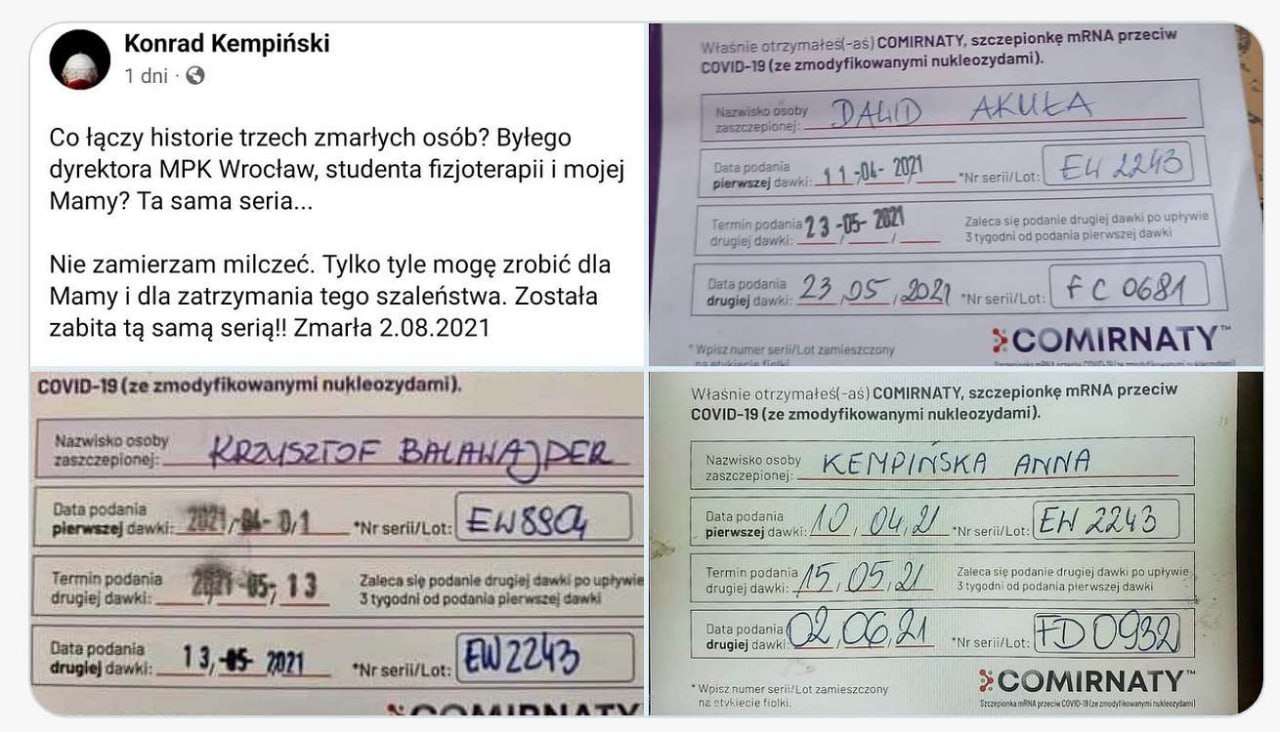 Konrad Kempiński
1 dni ·
Co łączy historie trzech zmarłych osób? Byłego
dyrektora MPK Wrocław, studenta fizjoterapii i mojej
Mamy? Ta sama seria...
Nie zamierzam milczeć. Tylko tyle mogę zrobić dla
Mamy i dla zatrzymania tego szaleństwa. Została
zabita tą samą serią!! Zmarła 2.08.2021
Właśnie otrzymałeś(-aś) COMIRNATY, szczepionkę mRNA przeciw
COVID-19 (ze zmodyfikowanymi nukleozydami).
Nazwisko osoby
zaszczepionej: DAWID AKUŁA
Data podania
pierwszej dawki: 11-04-2021 *Nr serii/Lot: EW 2243
Termin podania
drugiej dawki: 23-05-2021 Zaleca się podanie drugiej dawki po upływie
3 tygodni od podania pierwszej dawki
Data podania
drugiej dawki: 23 05 2021 *Nr serii/Lot: FC 0681
* Wpisz numer serii/Lot zamieszczony
na etykiecie fiolki.
COMIRNATY™
COVID-19 (ze zmodyfikowanymi nukleozydami).
Nazwisko osoby
zaszczepionej: KRZYSZTOF BALAWAJDER
Data podania
pierwszej dawki: 2021-04-01 *Nr serii/Lot: EW8904
Termin podania
drugiej dawki: 2021-05-13 Zaleca się podanie drugiej dawki po upływie
3 tygodni od podania pierwszej dawki
Data podania
drugiej dawki: 13, -05- 2021 *Nr serii/Lot: EW2243
COMIRNATY
Właśnie otrzymałeś(-aś) COMIRNATY, szczepionkę mRNA przeciw
COVID-19 (ze zmodyfikowanymi nukleozydami).
Nazwisko osoby
zaszczepionej: KEMPIŃSKA ANNA
Data podania
pierwszej dawki: 10,04,21 *Nr serii/Lot: EW 2243
Termin podania
drugiej dawki: 15,05,21 Zaleca się podanie drugiej dawki po upływie
3 tygodni od podania pierwszej dawki
Data podania
drugiej dawki: 02,06,21 *Nr serii/Lot: FD0932
* Wpisz numer serii/Lot zamieszczony
na etykiecie fiolki.
COMIRNATY™
Szczepionka mRNA przeciw COVID-19 (ze zmodyfikowanymi nukleozydami)